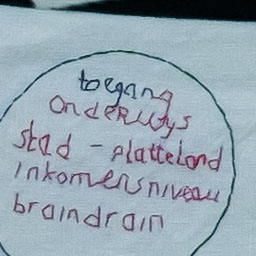 toegang
onderwys
stad - platteland
inkomensniveau
braindrain